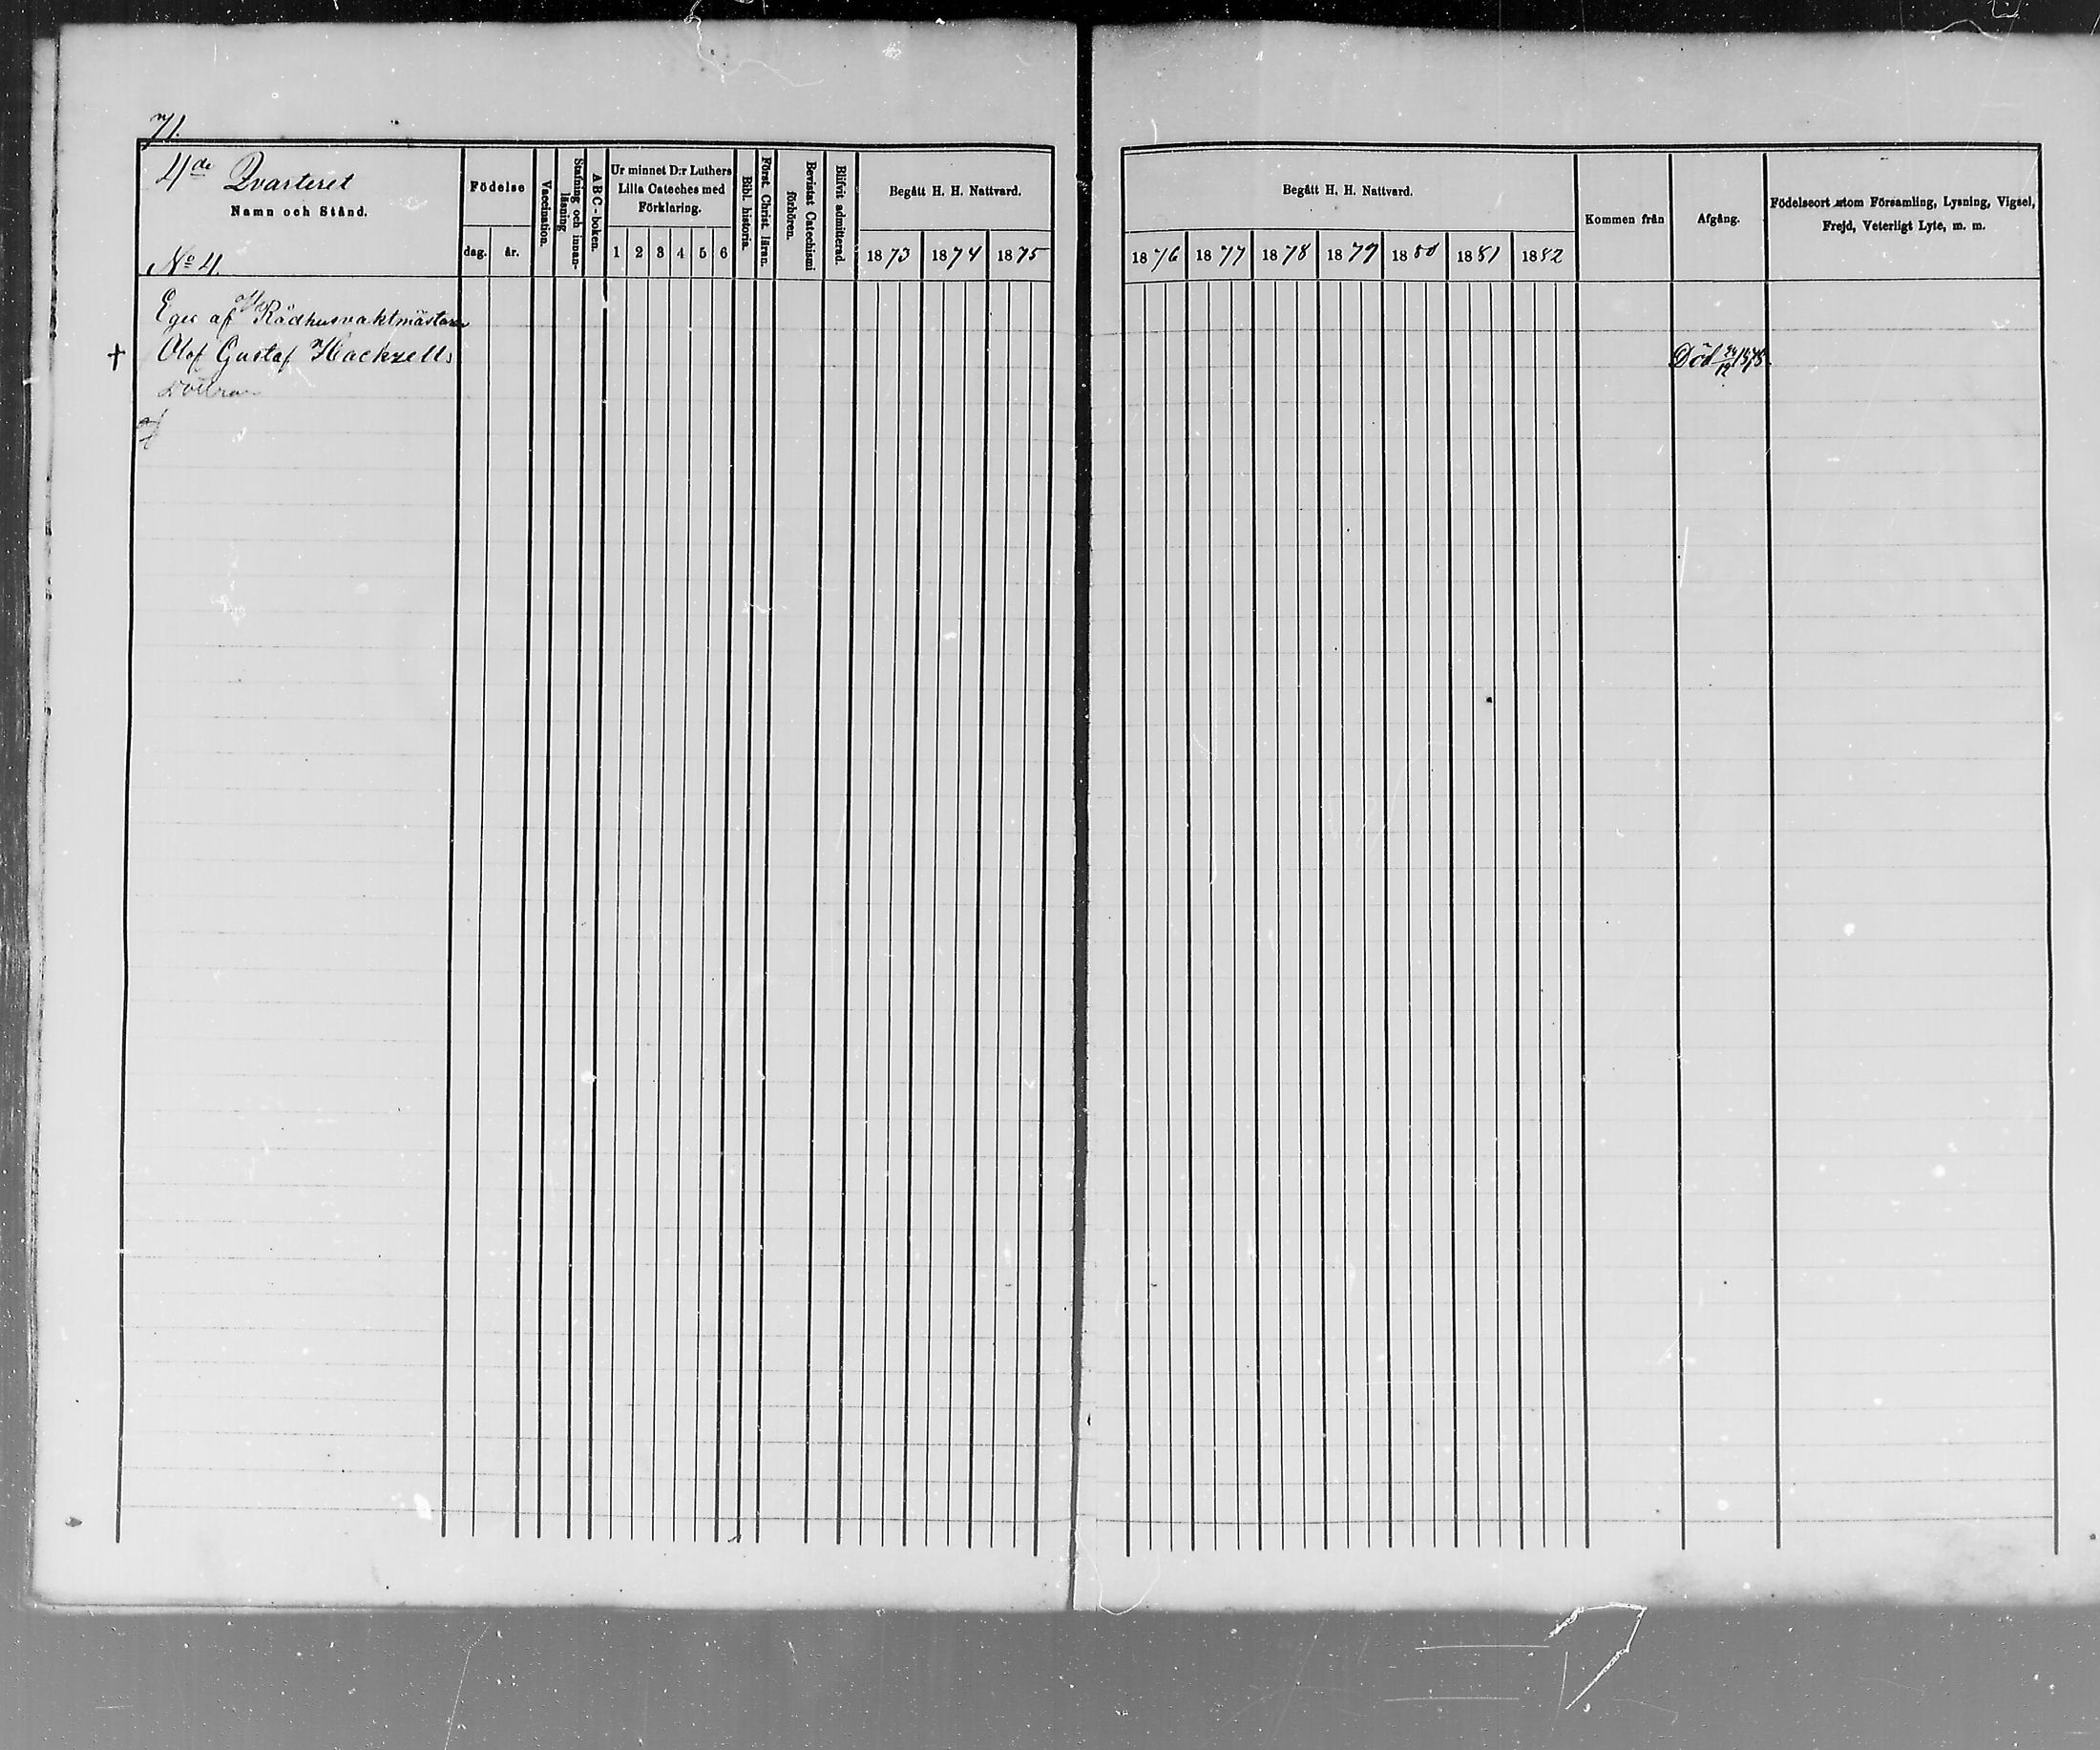 71.
4de Qvarteret
Namn och Stånd.
No 4.
Födelse
dag. år.
Vaccination.
Stafning och innanläsning
ABC-boken.
Ur minnet D:r Luthers
Lilla Cateches med
Förklaring.
1 2 3 4 5 6
Bibl. historia.
Först. Christ. läran.
Bevistat Catechismi
förhören.
Blifvit admitterad.
Begått H. H. Nattvard.
1873 1874 1875
Begått H. H. Nattvard.
1876 1877 1878 1879 1880 1881 1882
Kommen från
Afgång.
Födelseort utom Församling, Lysning, Vigsel,
Frejd, Veterligt Lyte, m. m.
Eges af Rådhusvaktmästaren
† Olof Gustaf Hackzells
Död 1878